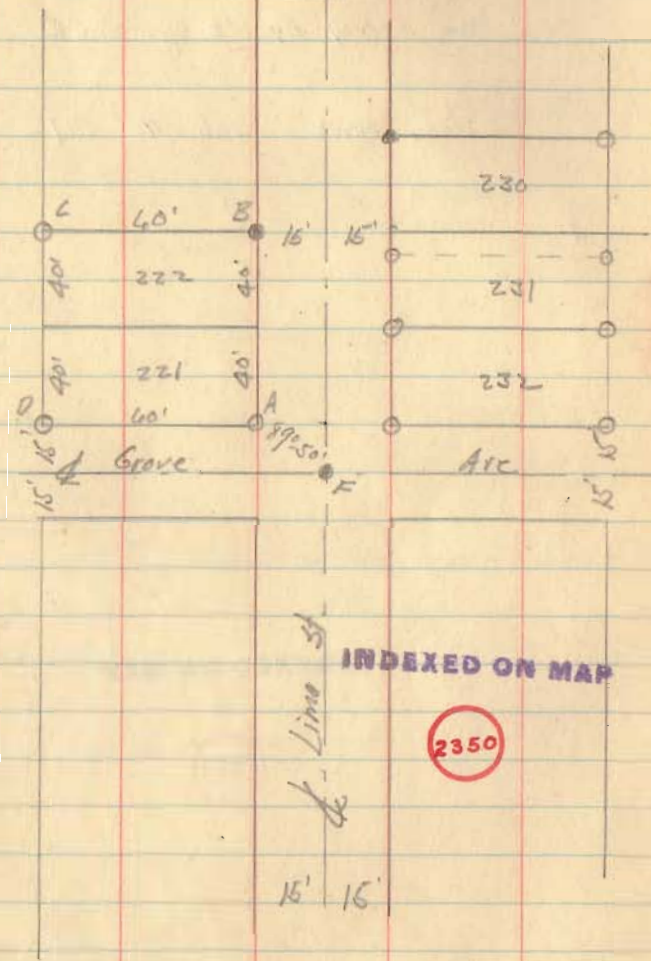 230
C 40' B 15' 15'
40' 222 40'
231
40' 221 40'
232
D 40' A
89°-50'
15' ℄ Grove Ave 15'
15' F 15'
℄ - Lime St
INDEXED ON MAP
2350
15' 15'